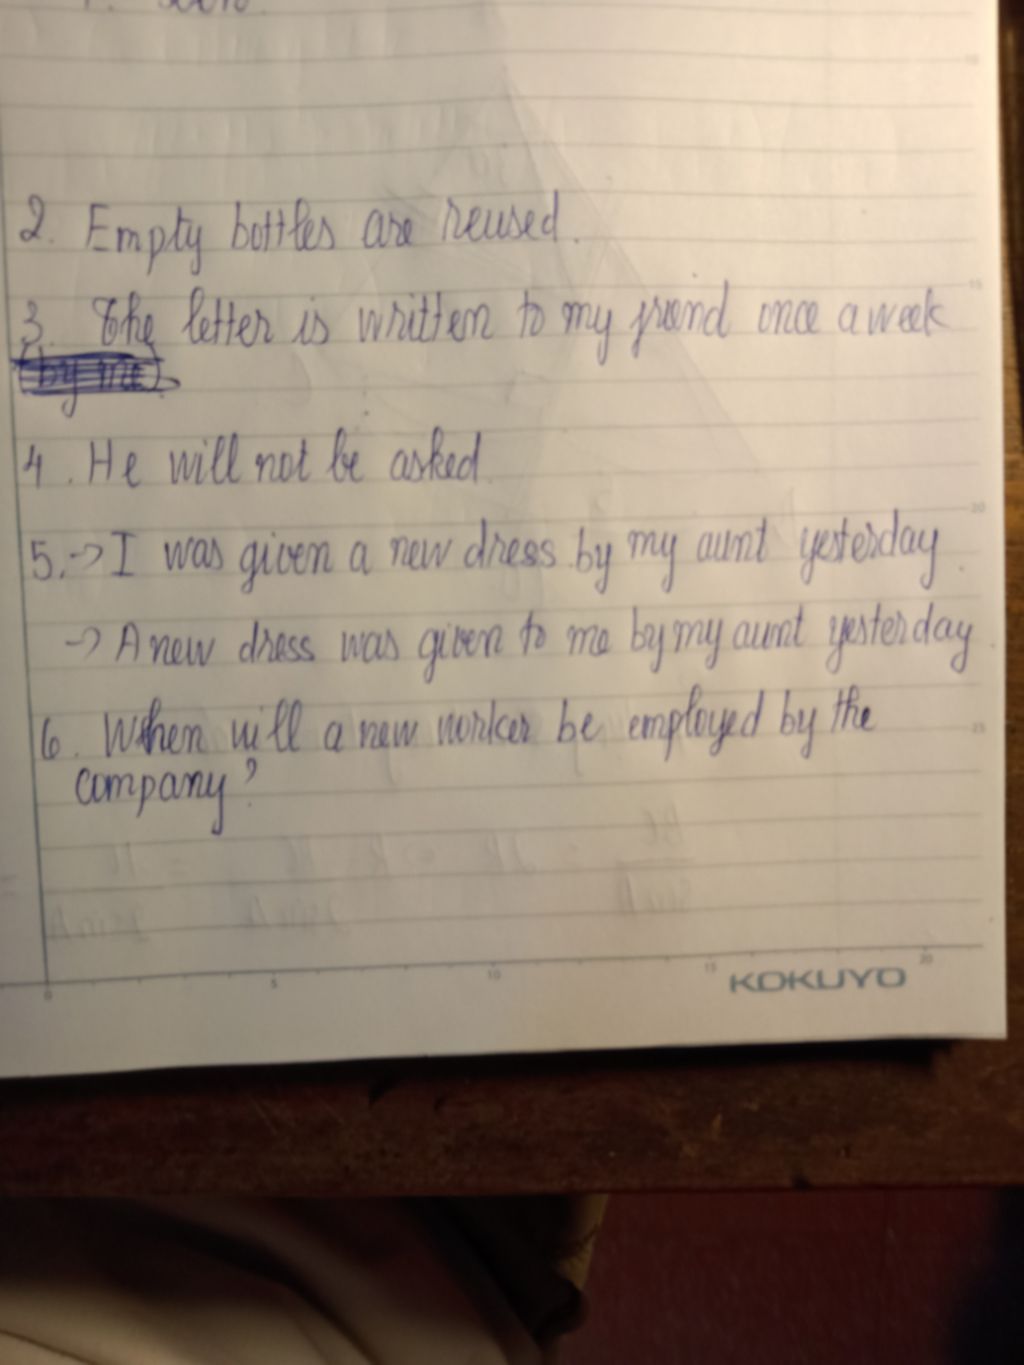 2. Empty bottles are reused.
3. The letter is written to my friend once a week
4. He will not be asked.
5. -> I was given a new dress by my aunt yesterday.
-> A new dress was given to me by my aunt yesterday.
6. When will a new worker be employed by the
company?
0 5 10 15 20
KOKUYO